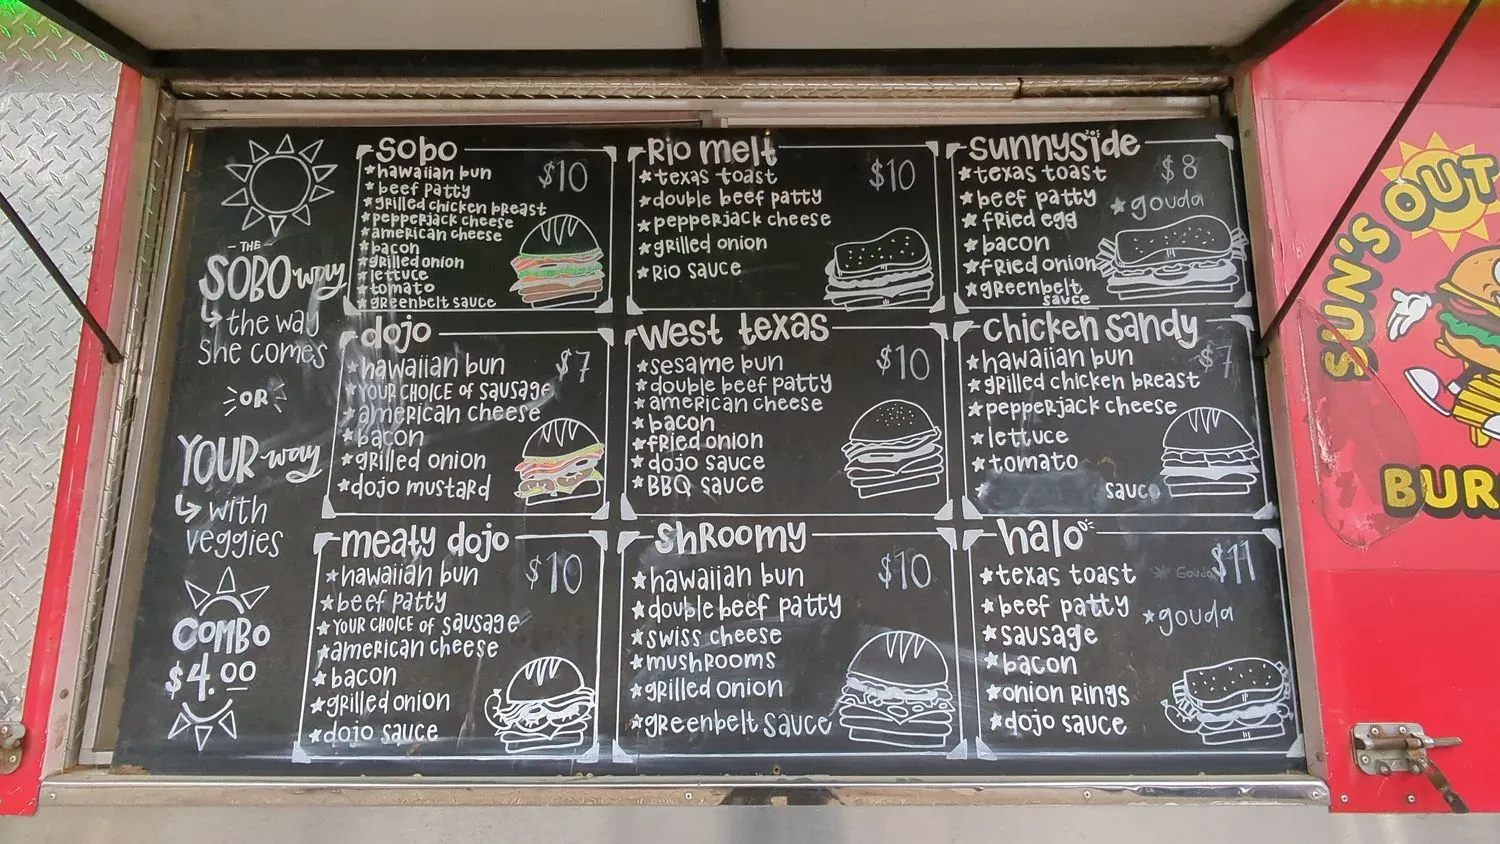 - THE -
SOBO way
the way
she comes
OR
YOUR way
with
veggies
COMBO
$4.00
SOBO
$10
hawaiian bun
beef patty
grilled chicken breast
pepperjack cheese
american cheese
bacon
grilled onion
lettuce
tomato
greenbelt sauce
Rio melt
$10
texas toast
double beef patty
pepperjack cheese
grilled onion
Rio sauce
sunnyside
$8
texas toast
beef patty
gouda
fried egg
bacon
fried onion
greenbelt
sauce
dojo
$7
hawaiian bun
YOUR CHOICE OF SAUSAGE
american cheese
bacon
grilled onion
dojo mustard
west texas
$10
sesame bun
double beef patty
american cheese
bacon
fried onion
dojo sauce
BBQ sauce
chicken sandy
$7
hawaiian bun
grilled chicken breast
pepperjack cheese
lettuce
tomato
sauce
meaty dojo
$10
hawaiian bun
beef patty
YOUR CHOICE OF sausage
american cheese
bacon
grilled onion
dojo sauce
shroomy
$10
hawaiian bun
double beef patty
swiss cheese
mushrooms
grilled onion
greenbelt sauce
halo
$11
texas toast
Gouda
beef patty
gouda
sausage
bacon
onion rings
dojo sauce
SUN'S OUT
BUR